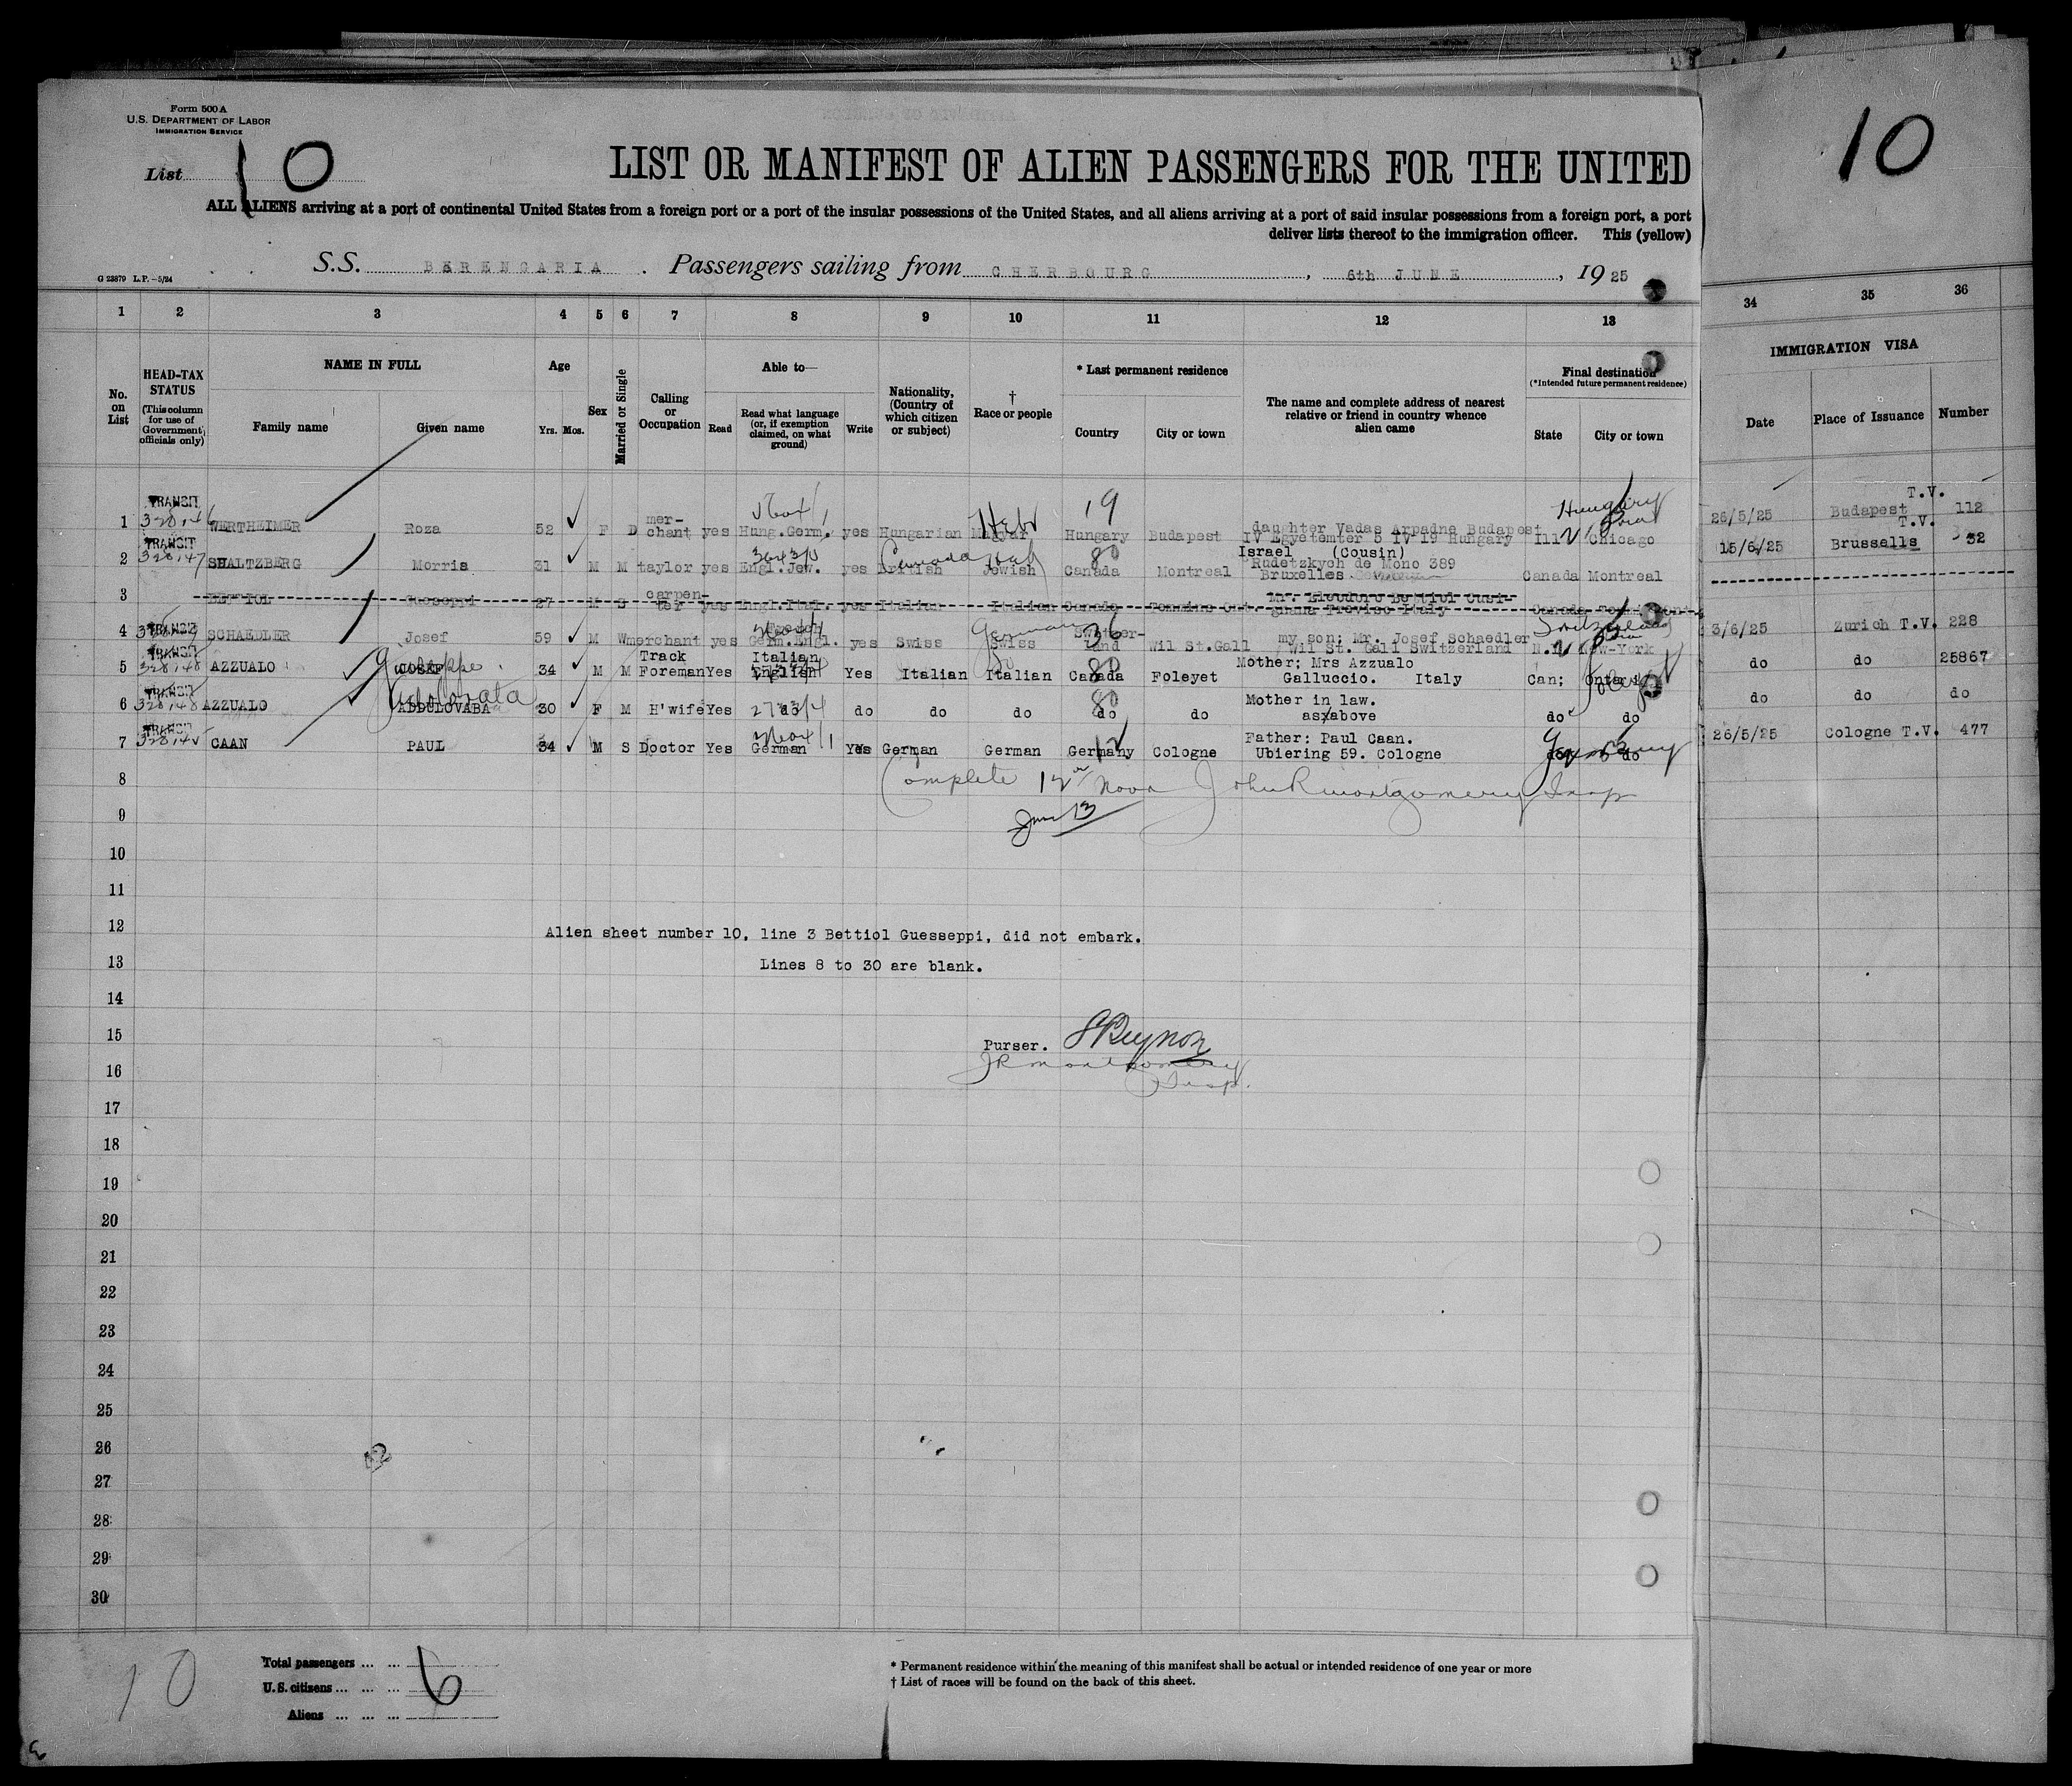 Form 500 A
U.S. DEPARTMENT OF LABOR
IMMIGRATION SERVICE
List 10
LIST OR MANIFEST OF ALIEN PASSENGERS FOR THE UNITED
10
ALL ALIENS arriving at a port of continental United States from a foreign port or a port of the insular possessions of the United States, and all aliens arriving at a port of said insular possessions from a foreign port, a port
deliver lists thereof to the immigration officer. This (yellow)
S.S. BERENGARIA . Passengers sailing from CHERBOURG , 6th JUNE , 19 25
G 23879 L.P.—5/24
1 2 3 4 5 6 7 8 9 10 11 12 13 34 35 36
No. on List
HEAD-TAX STATUS (This column for use of Government officials only)
NAME IN FULL
Family name Given name
Age
Yrs. Mos.
Sex
Married or Single
Calling or Occupation
Able to—
Read Read what language (or, if exemption claimed, on what ground) Write
Nationality, (Country of which citizen or subject)
† Race or people
* Last permanent residence
Country City or town
The name and complete address of nearest relative or friend in country whence alien came
Final destination (*Intended future permanent residence)
State City or town
IMMIGRATION VISA
Date Place of Issuance Number
1 TRANSIT WERTHEIMER Roza 52 F D mer-chant yes Hung.Germ. yes Hungarian Magyar Hebr Hungary 19 Budapest daughter Vadas Arpadne Budapest IV Egyetemter 5 IV 19 Hungary Ill Chicago Hungary 26/5/25 Budapest T.V. 112
2 TRANSIT SHALTZBERG Morris 31 M M taylor yes Engl.Jew. yes British Canada Jewish Canada 80 Montreal Israel (Cousin) Rudetzkych de Mono 389 Bruxelles Canada Montreal 15/6/25 Brussells T.V. 32
3 BETTIOL Gueseppi 27 M S carpen-ter yes Engl.Ital. yes Italian Italian Canada Mr. Eleodoro Bettiol Cusi-ghana Treviso Italy Canada
4 TRANSIT SCHAEDLER Josef 59 M W merchant yes Germ.Engl. yes Swiss Swiss German Switzer-land 36 Wil St.Gall my son; Mr. Josef Schaedler Wil St. Gall Switzerland N.Y. New-York Switzerland 3/6/25 Zurich T.V. 228
5 TRANSIT AZZUALO JOSEF Giuseppe 34 M M Track Foreman Yes Italian English Yes Italian Italian Canada 80 Foleyet Mother; Mrs Azzualo Galluccio. Italy Can; Ontario do do 25867
6 TRANSIT AZZUALO ADDULOVABA Addolorata 30 F M H'wife Yes do do do do do 80 do Mother in law. as above do do do do do
7 TRANSIT CAAN PAUL 34 M S Doctor Yes German Yes German German Germany 12 Cologne Father: Paul Caan. Ubiering 59. Cologne do do Germany 26/5/25 Cologne T.V. 477
8 Complete 12 Noon John R Montgomery Insp
9 Jun 13
10
11
12 Alien sheet number 10, line 3 Bettiol Guesseppi, did not embark.
13 Lines 8 to 30 are blank.
14
15 Purser.
16 J R Montgomery Insp.
17
18
19
20
21
22
23
24
25
26
27
28
29
30
10
Total passengers ... ...
U.S. citizens ... ... ... 6
Aliens ... ... ...
* Permanent residence within the meaning of this manifest shall be actual or intended residence of one year or more
† List of races will be found on the back of this sheet.